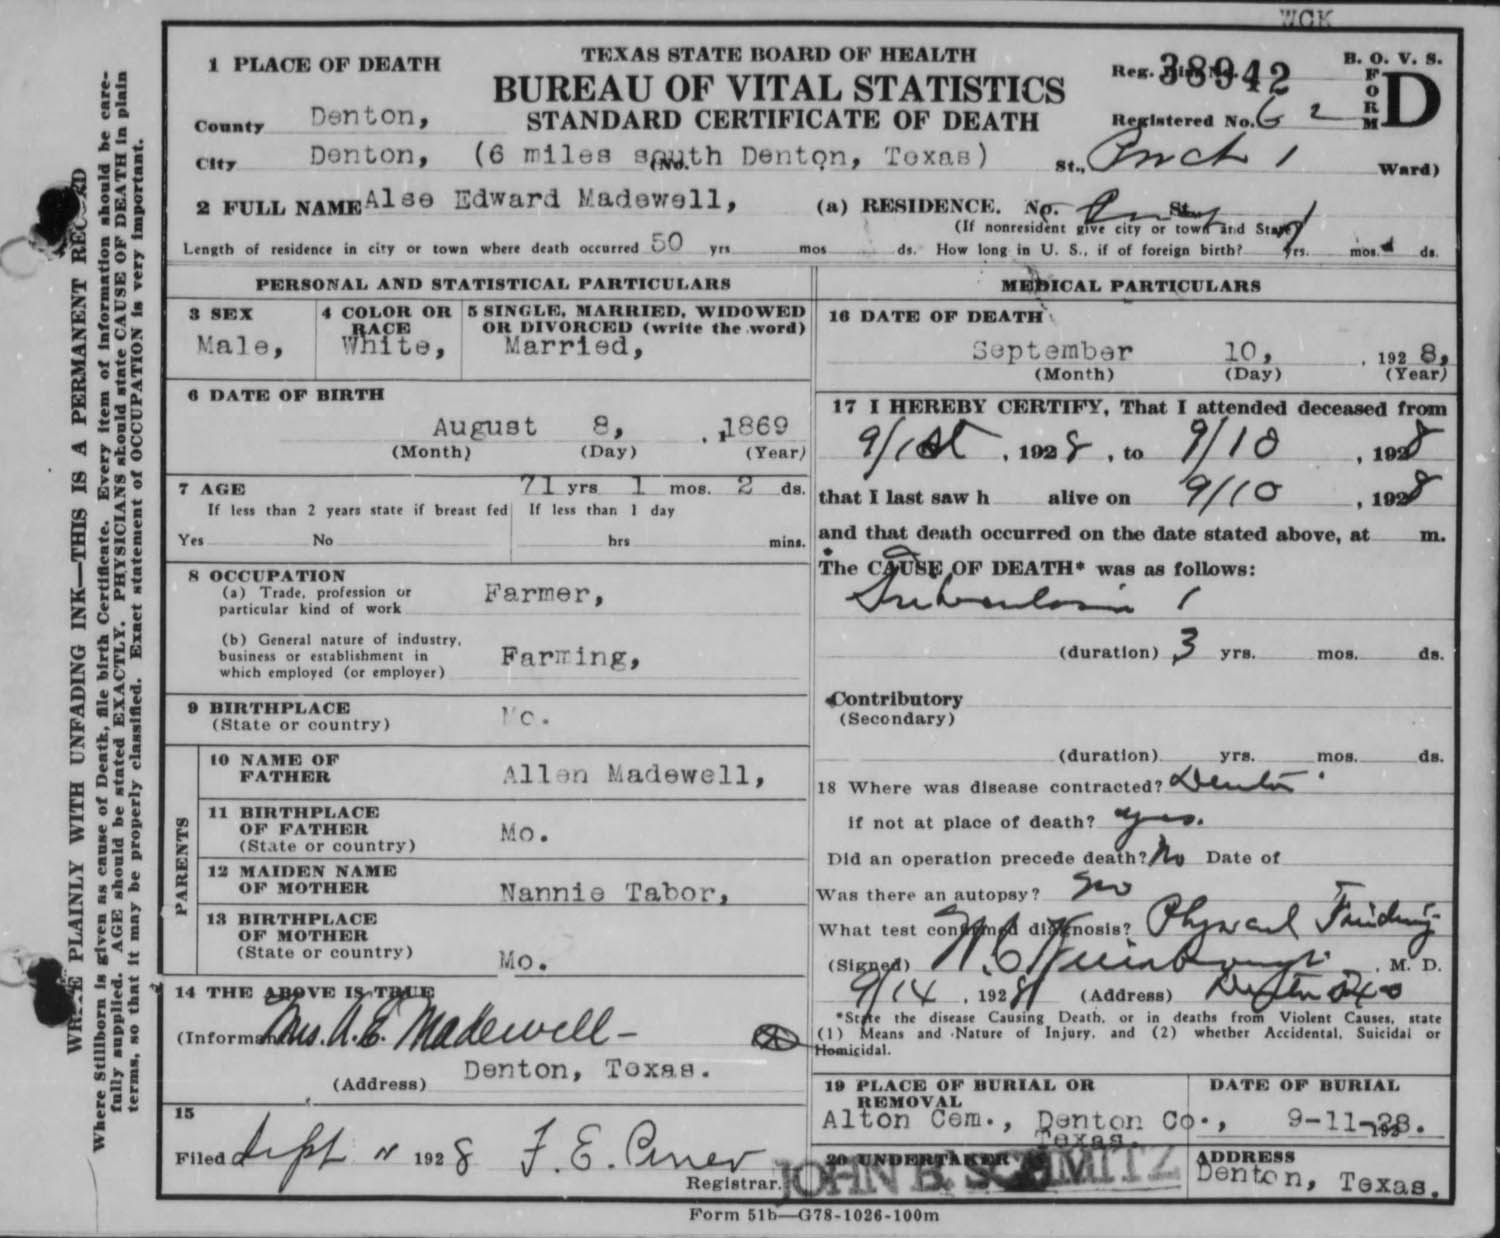 WCK
1 PLACE OF DEATH
TEXAS STATE BOARD OF HEALTH
BUREAU OF VITAL STATISTICS
STANDARD CERTIFICATE OF DEATH
Reg. 38942
B. O. V. S.
FORM D
County Denton,
Registered No. 62
City Denton, (6 miles south Denton, Texas) (No. St., Prect 1 Ward)
2 FULL NAME Alse Edward Madewell, (a) RESIDENCE. No. St.
(If nonresident give city or town and State)
Length of residence in city or town where death occurred 50 yrs mos ds. How long in U. S., if of foreign birth? yrs. mos. ds.
PERSONAL AND STATISTICAL PARTICULARS
3 SEX
Male,
4 COLOR OR RACE
White,
5 SINGLE, MARRIED, WIDOWED
OR DIVORCED (write the word)
Married,
6 DATE OF BIRTH
August 8, , 1869
(Month) (Day) (Year)
7 AGE 71 yrs 1 mos. 2 ds.
If less than 2 years state if breast fed If less than 1 day
Yes No hrs mins.
8 OCCUPATION
(a) Trade, profession or
particular kind of work Farmer,
(b) General nature of industry,
business or establishment in
which employed (or employer) Farming,
9 BIRTHPLACE
(State or country) Mo.
PARENTS
10 NAME OF
FATHER Allen Madewell,
11 BIRTHPLACE
OF FATHER
(State or country) Mo.
12 MAIDEN NAME
OF MOTHER Nannie Tabor,
13 BIRTHPLACE
OF MOTHER
(State or country) Mo.
14 THE ABOVE IS TRUE
(Informant) Mrs. A. E. Madewell
(Address) Denton, Texas.
15
Filed Sept 11 1928 F. E. Piner
Registrar.
MEDICAL PARTICULARS
16 DATE OF DEATH
September 10, , 192 8,
(Month) (Day) (Year)
17 I HEREBY CERTIFY, That I attended deceased from
9/1st , 1928 , to 9/10 , 1928
that I last saw h alive on 9/10 , 1928
and that death occurred on the date stated above, at m.
The CAUSE OF DEATH* was as follows:
Tuberculosis
(duration) 3 yrs. mos. ds.
Contributory
(Secondary)
(duration) yrs. mos. ds.
18 Where was disease contracted? Denton
if not at place of death? yes.
Did an operation precede death? No Date of
Was there an autopsy? no
What test confirmed diagnosis? Physical Findings
(Signed) , M. D.
9/14 , 1928 (Address) Denton Texas
*State the disease Causing Death, or in deaths from Violent Causes, state
(1) Means and Nature of Injury, and (2) whether Accidental, Suicidal or
Homicidal.
19 PLACE OF BURIAL OR
REMOVAL
Alton Cem., Denton Co.,
Texas.
DATE OF BURIAL
9-11-28. 192
20 UNDERTAKER
JOHN B. SCHMITZ
ADDRESS
Denton, Texas.
Form 51b—G78-1026-100m
WRITE PLAINLY WITH UNFADING INK—THIS IS A PERMANENT RECORD
Where Stillborn is given as cause of Death, file birth Certificate. Every item of information should be care-
fully supplied. AGE should be stated EXACTLY. PHYSICIANS should state CAUSE OF DEATH in plain
terms, so that it may be properly classified. Exact statement of OCCUPATION is very important.